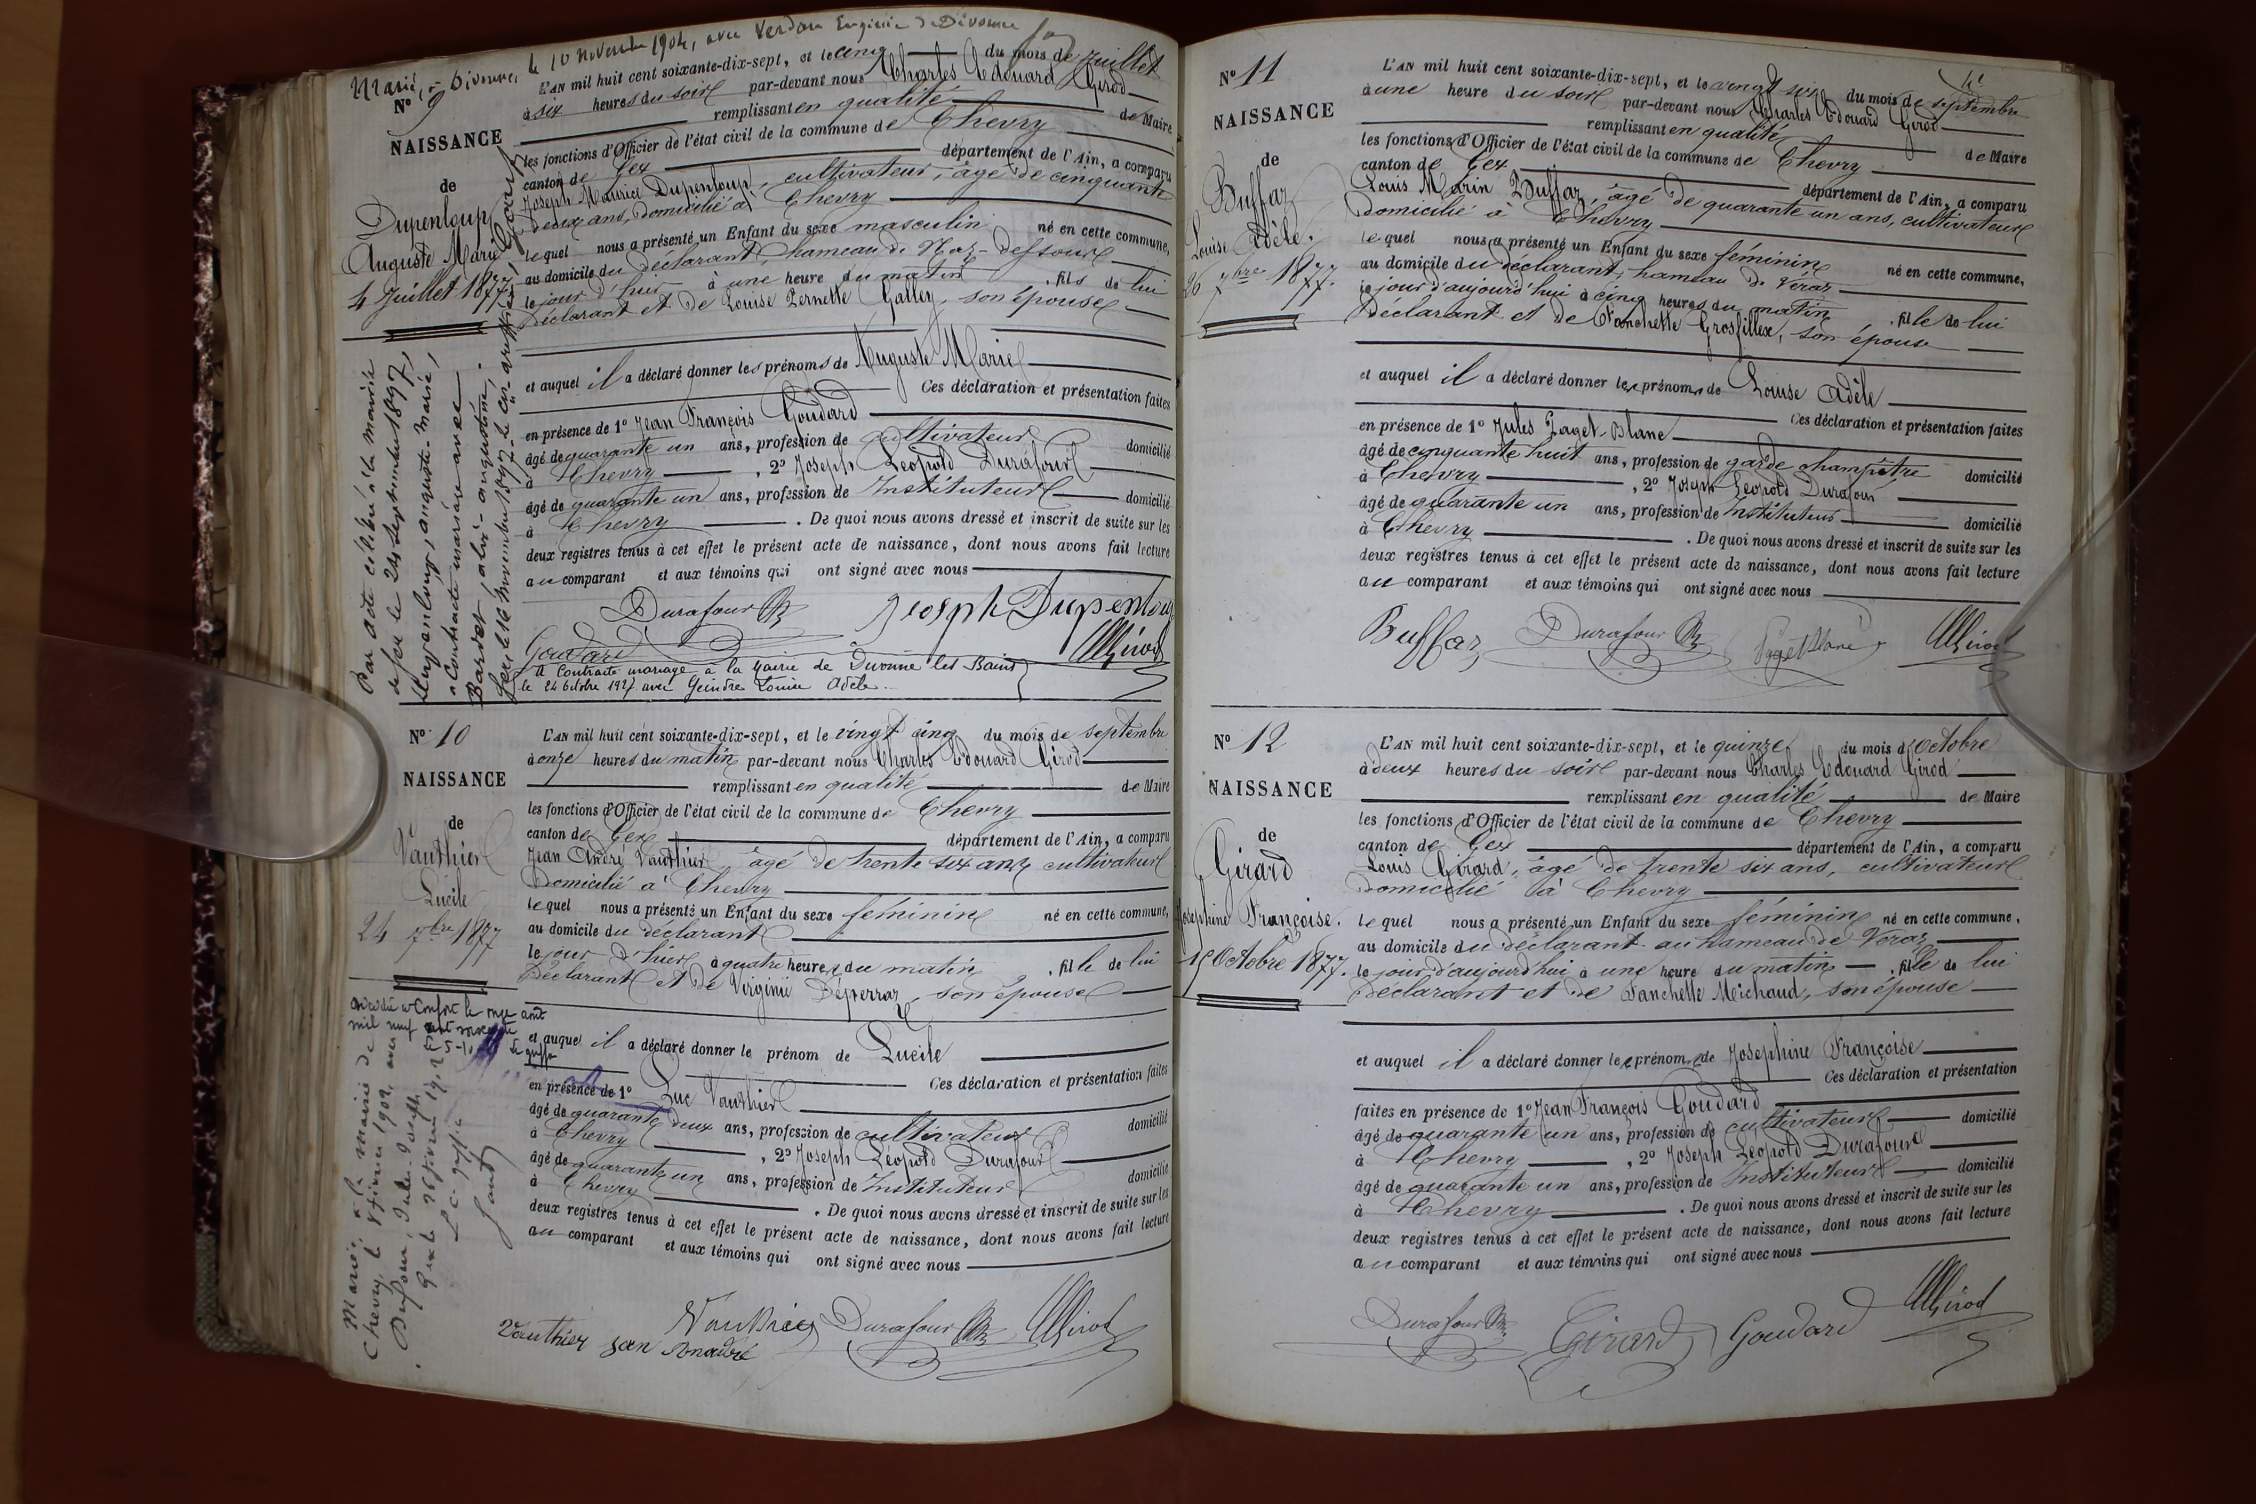 Marié, à Divonne, le 10 Novembre 1904, avec Verdon Eugénie de Divonne
N° 9
NAISSANCE
de
Dupenloup
Auguste Marie
4 Juillet 1877
Par acte célébré à la mairie
de Gex le 24 septembre 1897,
Dupenloup, auguste-marie,
a contracté mariage avec
Bardet, alix-augustine,
Gex, le 16 novembre 1897. le
L'AN mil huit cent soixante-dix-sept, et le cinq du mois de Juillet
à six heures du soir par-devant nous Charles Edouard Girod
remplissant en qualité de Maire
les fonctions d'Officier de l'état civil de la commune de Chevry
canton de Gex département de l'Ain, a comparu
Joseph Maurice Dupenloup, cultivateur, âgé de cinquante
deux ans, domicilié à Chevry
lequel nous a présenté un Enfant du sexe masculin né en cette commune,
au domicile du déclarant, hameau de Naz-dessous
le jour d'hier à une heure du matin, fils de lui
Déclarant et de Louise Pernette Galley, son épouse
et auquel il a déclaré donner les prénoms de Auguste Marie
Ces déclaration et présentation faites
en présence de 1° Jean François Goudard
âgé de quarante un ans, profession de cultivateur domicilié
à Chevry, 2° Joseph Léopold Durafour
âgé de quarante un ans, profession de Instituteur domicilié
à Chevry. De quoi nous avons dressé et inscrit de suite sur les
deux registres tenus à cet effet le présent acte de naissance, dont nous avons fait lecture
au comparant et aux témoins qui ont signé avec nous
Durafour Joseph Dupenloup
Goudard Girod
A contracté mariage à la Mairie de Divonne les Bains
le 24 octobre 1927 avec Geindre Louise Adèle.
N° 10
NAISSANCE
de
Vauthier
Lucile
24 7bre 1877
décédée à Confort le onze août
mil neuf cent soixante
Mariée, à la mairie de
Chevry, le 8 février 1902, avec
Dufour, Jules-Joseph
Gex le 26 février 1902
L'AN mil huit cent soixante-dix-sept, et le vingt cinq du mois de septembre
à onze heures du matin par-devant nous Charles Edouard Girod
remplissant en qualité de Maire
les fonctions d'Officier de l'état civil de la commune de Chevry
canton de Gex département de l'Ain, a comparu
Jean André Vauthier, âgé de trente six ans, cultivateur
Domicilié à Chevry
lequel nous a présenté un Enfant du sexe féminin né en cette commune,
au domicile du déclarant
le jour d'hier à quatre heures du matin, fille de lui
Déclarant et de Virginie Déperraz, son épouse
et auquel il a déclaré donner le prénom de Lucile
Ces déclaration et présentation faites
en présence de 1° Luc Vauthier
âgé de quarante deux ans, profession de cultivateur domicilié
à Chevry, 2° Joseph Léopold Durafour
âgé de quarante un ans, profession de Instituteur domicilié
à Chevry. De quoi nous avons dressé et inscrit de suite sur les
deux registres tenus à cet effet le présent acte de naissance, dont nous avons fait lecture
au comparant et aux témoins qui ont signé avec nous
Vauthier Durafour Girod
Vauthier Jean
N° 11
NAISSANCE
de
Buffaz
Louise Adèle.
26 7bre 1877.
L'AN mil huit cent soixante-dix-sept, et le vingt six du mois de septembre
à une heure du soir par-devant nous Charles Edouard Girod
remplissant en qualité de Maire
les fonctions d'Officier de l'état civil de la commune de Chevry
canton de Gex département de l'Ain, a comparu
Louis Marin Buffaz, âgé de quarante un ans, cultivateur
domicilié à Chevry
lequel nous a présenté un Enfant du sexe féminin né en cette commune,
au domicile du déclarant, hameau de Véraz
le jour d'aujourd'hui à cinq heures du matin, fille de lui
Déclarant et de Fanchette Grosfillex, son épouse
et auquel il a déclaré donner les prénoms de Louise Adèle
Ces déclaration et présentation faites
en présence de 1° Jules Paget-Blanc
âgé de cinquante huit ans, profession de garde champêtre domicilié
à Chevry, 2° Joseph Léopold Durafour
âgé de quarante un ans, profession de Instituteur domicilié
à Chevry. De quoi nous avons dressé et inscrit de suite sur les
deux registres tenus à cet effet le présent acte de naissance, dont nous avons fait lecture
au comparant et aux témoins qui ont signé avec nous
Buffaz Durafour Paget Blanc Girod
N° 12
NAISSANCE
de
Girard
Josephine Françoise.
15 Octobre 1877.
L'AN mil huit cent soixante-dix-sept, et le quinze du mois d'Octobre
à deux heures du soir par-devant nous Charles Edouard Girod
remplissant en qualité de Maire
les fonctions d'Officier de l'état civil de la commune de Chevry
canton de Gex département de l'Ain, a comparu
Louis Girard, âgé de trente six ans, cultivateur
Domicilié à Chevry
lequel nous a présenté un Enfant du sexe féminin né en cette commune,
au domicile du déclarant au hameau de Véraz
le jour d'aujourd'hui à une heure du matin, fille de lui
Déclarant et de Fanchette Michaud, son épouse
et auquel il a déclaré donner les prénoms de Josephine Françoise
Ces déclaration et présentation
faites en présence de 1° Jean François Goudard
âgé de quarante un ans, profession de cultivateur domicilié
à Chevry, 2° Joseph Léopold Durafour
âgé de quarante un ans, profession de Instituteur domicilié
à Chevry. De quoi nous avons dressé et inscrit de suite sur les
deux registres tenus à cet effet le présent acte de naissance, dont nous avons fait lecture
au comparant et aux témoins qui ont signé avec nous
Durafour Girard Goudard Girod